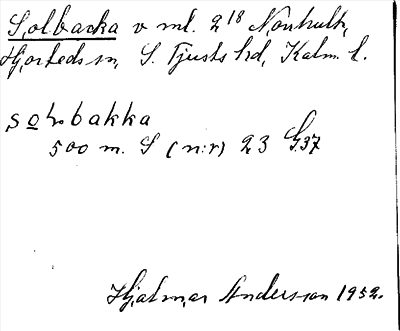 Solbacka v ml. 2 18 Norrhult,
Hjorteds sn, S. Tjusts hd, Kalm. l.
bakka
500 m. S (n:r) 23 G37
Hjalmar Andersson 1952.